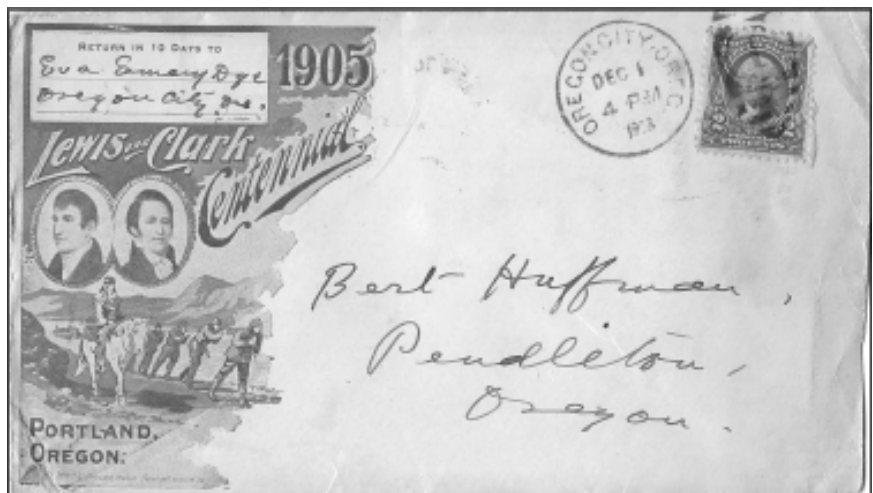 RETURN IN 10 DAYS TO
Eva Emery Dye
Oregon City, Or.
1905
Lewis and Clark
Centennial
PORTLAND,
OREGON.
OREGON CITY, OREG.
DEC 1
4 PM
2 2
Bert Huffman,
Pendleton,
Oregon.